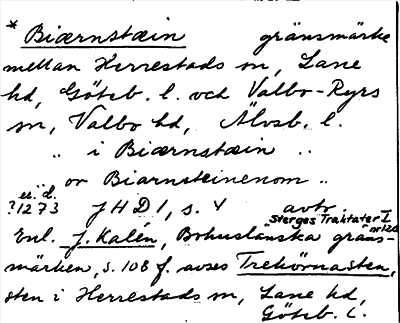 * Biærnstæin gränsmärke
mellan Herrestads sn, Lane
hd, Göteb. l. och Valbo-Ryrs
sn, Valbo hd, Älvsb. l.
" i Biærnstæin ..
" or Biarnsteinenom ..
ee. d.
? 1273 JHD 1, s. 4 avtr.
Sverges Traktater I
nr 120
Enl. J. Kalén, Bohuslänska gräns-
märken, s. 108 f. avses Trehörnasten,
sten i Herrestads sn, Lane hd,
Göteb. l.